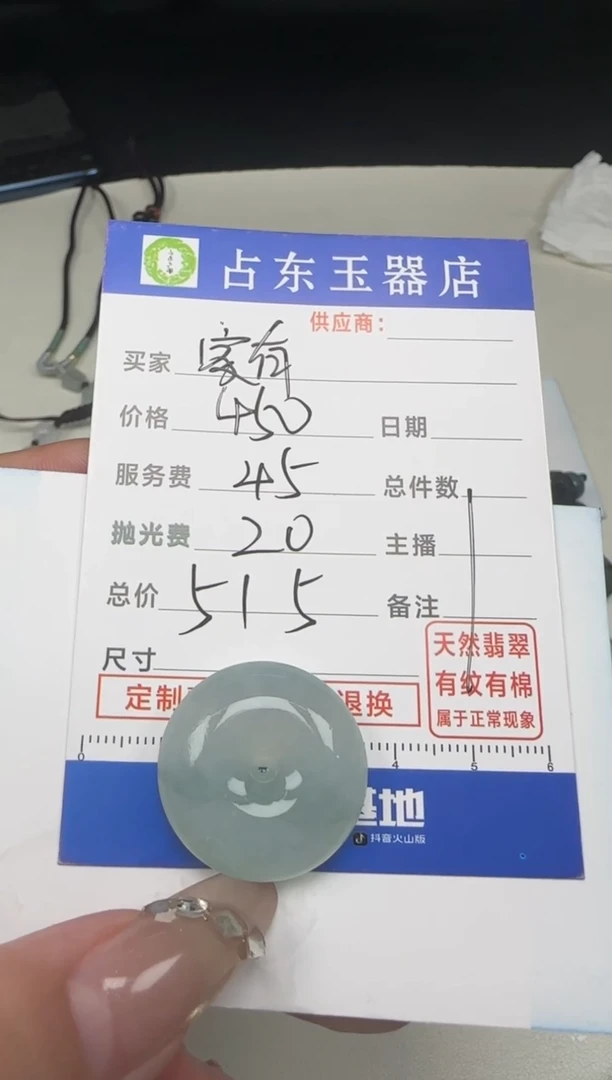 占东玉器店
供应商：
买家 家有
价格 450 日期
服务费 45 总件数
抛光费 20 主播
总价 515 备注
尺寸
定制 退换
天然翡翠
有纹有棉
属于正常现象
0 4 5 6
基地
抖音火山版